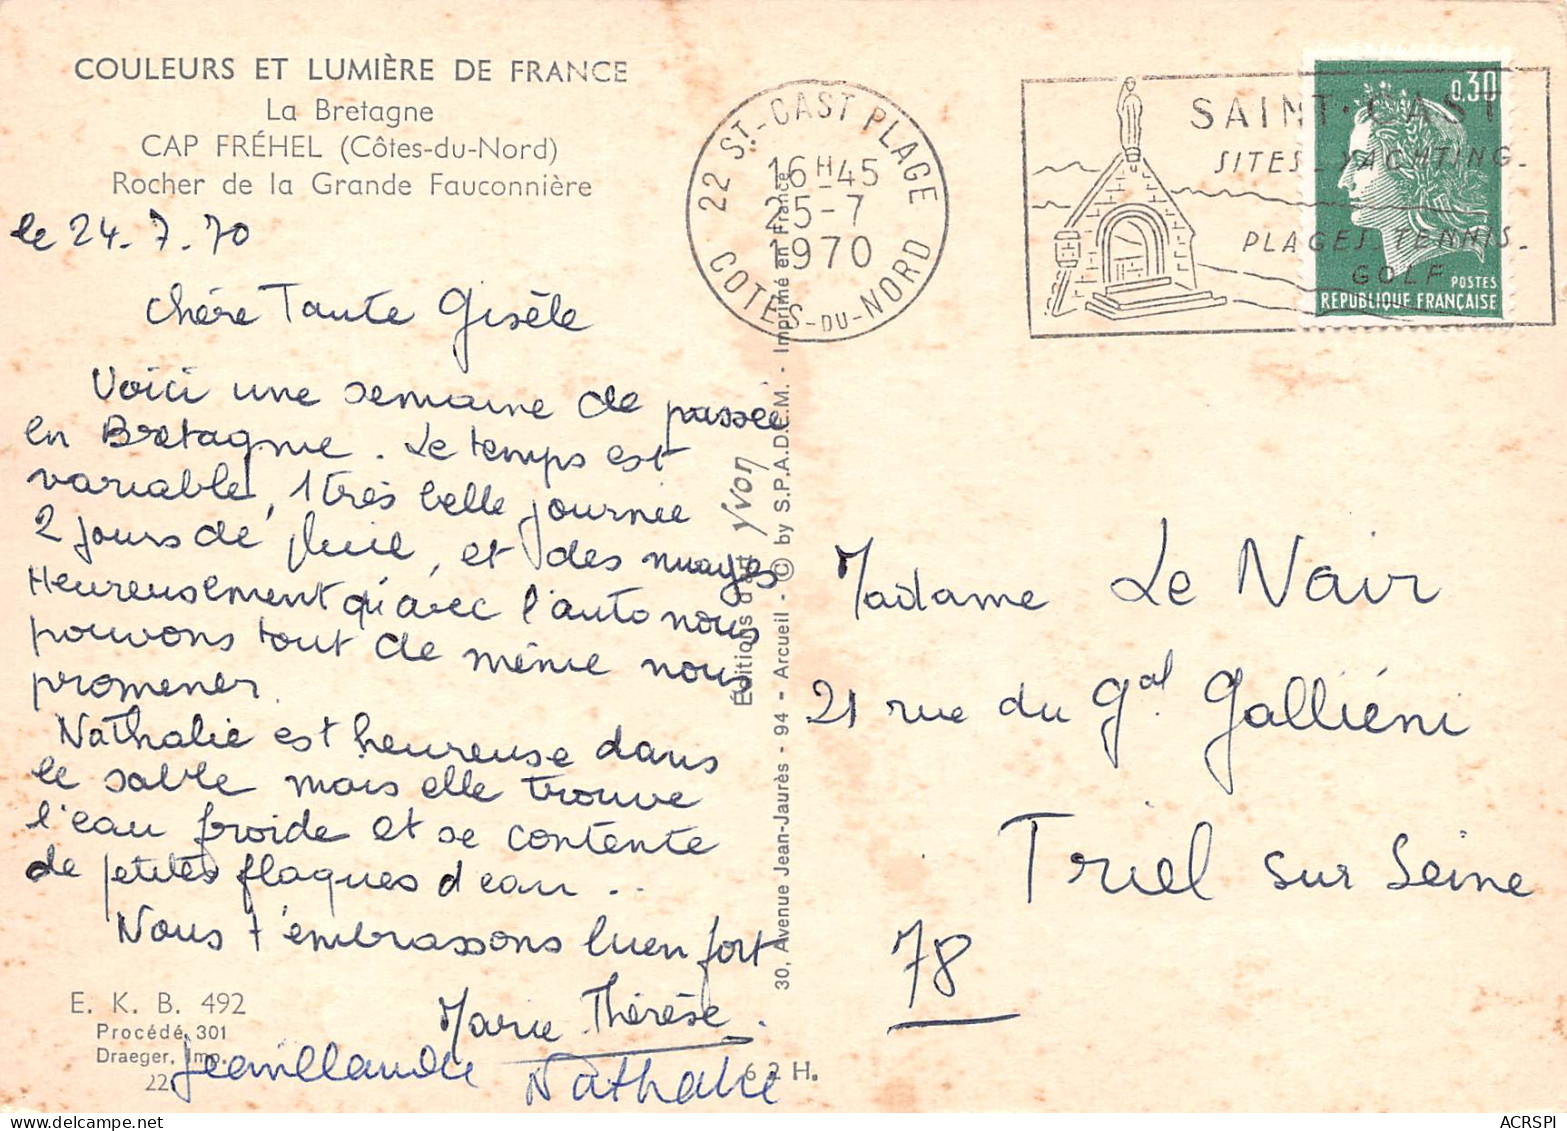 COULEURS ET LUMIÈRE DE FRANCE
La Bretagne
CAP FRÉHEL (Côtes-du-Nord)
Rocher de la Grande Fauconnière
le 24.7.70
Chère Tante Gisèle
Voici une semaine de passée
en Bretagne. Le temps est
variable, 1 très belle journée
2 jours de pluie, et des nuages
Heureusement qu'avec l'auto nous
pouvons tout de même nous
promener.
Nathalie est heureuse dans
le sable mais elle trouve
l'eau froide et se contente
de petites flaques d'eau ..
Nous t'embrassons bien fort
Marie Thérèse.
Nathalie
E. K. B. 492
Procédé 301
Draeger, Imp.
22
6 2 H.
Éditions d'art yvon
30, Avenue Jean-Jaurès - 94 - Arcueil - © by S.P.A.D.E.M. - Imprimé en France
22 ST-CAST PLAGE
16H45
25-7
1970
COTES-DU-NORD
SAINT-CAST
SITES_YACHTING_
PLAGES_TENNIS_
GOLF
0,30
POSTES
RÉPUBLIQUE FRANÇAISE
Madame Le Nair
21 rue du Gal Galliéni
Triel sur Seine
78
ACRSPI